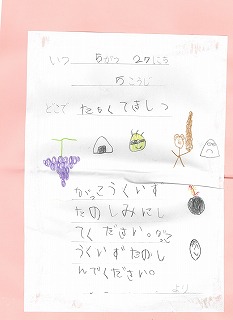 いつ 5がつ 27にち
5こうじ
どこで たなくてきしつ
がっこうくいず
たのしみにし
てください。がっこ
うくいずたのし
んでください。
より